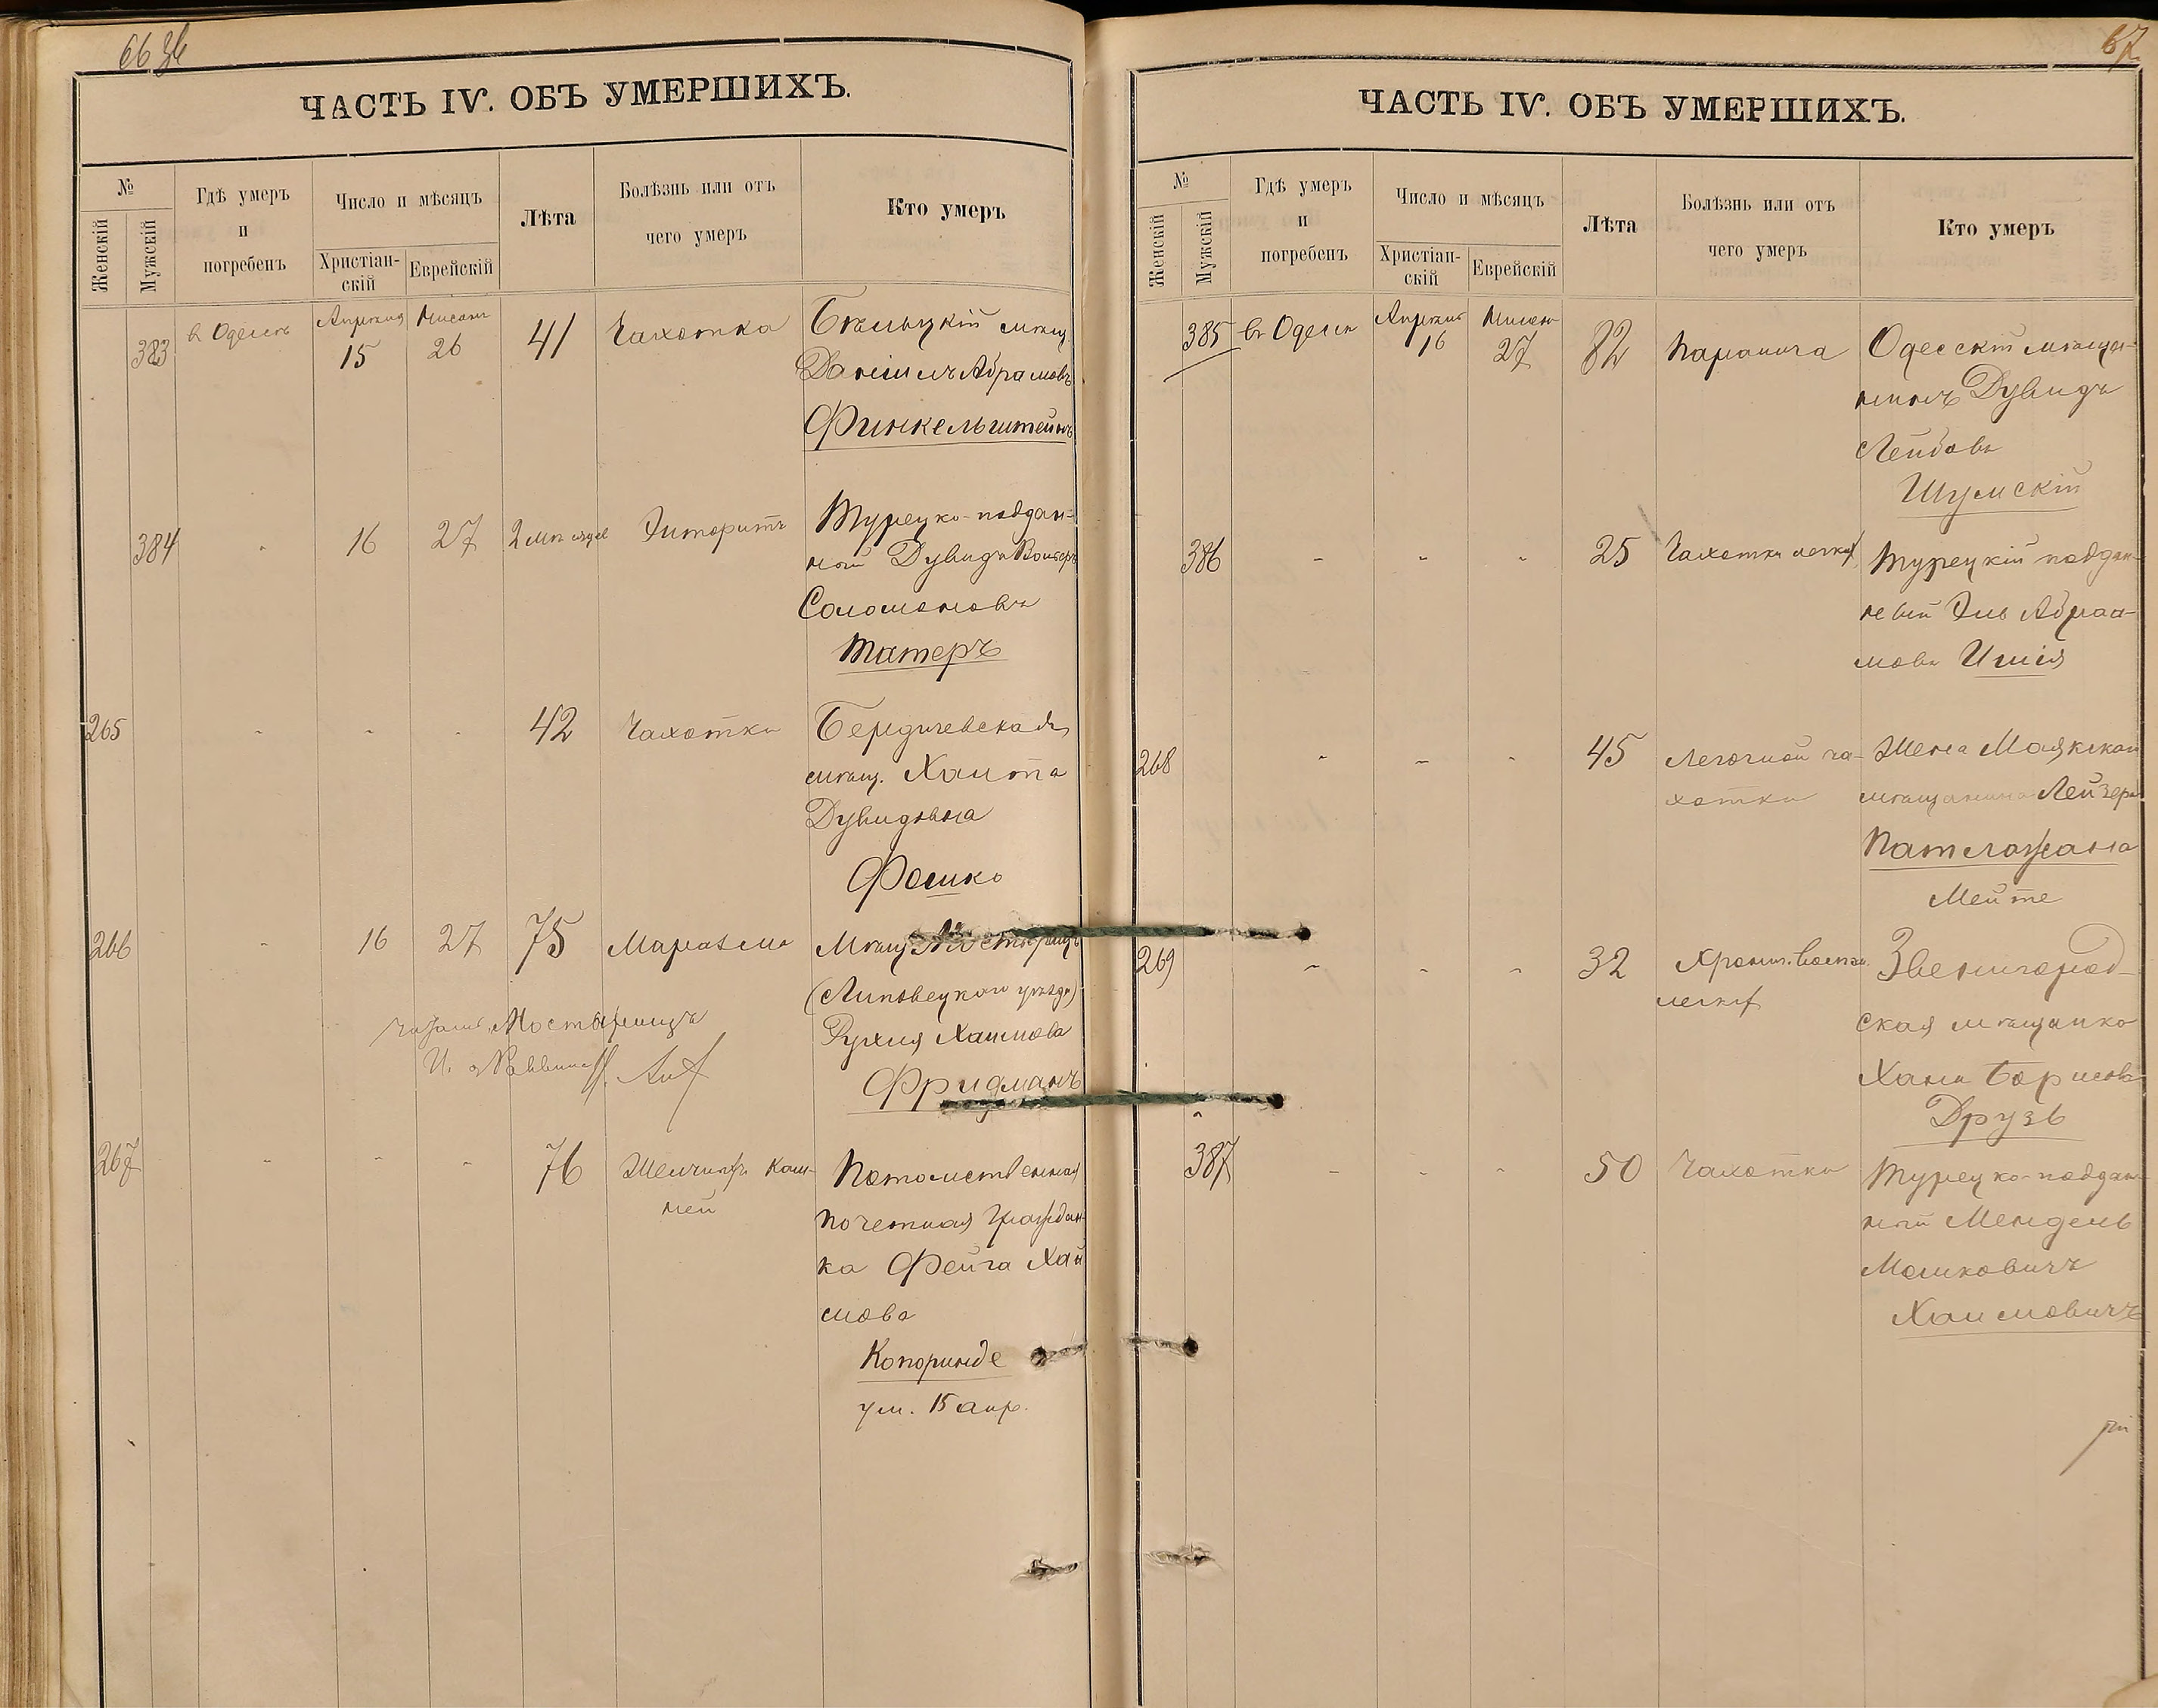 66 об
ЧАСТЬ IV. ОБЪ УМЕРШИХЪ.
№
Женскій
Мужскій
Гдѣ умеръ
и
погребенъ
Число и мѣсяцъ
Христіан-
скій
Еврейскій
Лѣта
Болѣзнь или отъ
чего умеръ
Кто умеръ
383
в Одессѣ
Апрѣля
15
Нисанъ
26
41
Чахотка
Бѣльцкій мѣщ.
Даніилъ Абрамовъ
Финкельштейнъ
384
16
27
2 мѣсяца
Энтеритъ
Турецко-поддан-
ный Дувидъ
Соломоновъ
Татеръ
265
42
Чахотка
Бердичевская
мѣщ.
Дувидовна
Фошко
266
16
27
75
Маразма
Мѣщ.
(Липовецкаго уѣзда)
Рухля Хаимова
Фридманъ
И. д. Раввина
267
76
Желчныхъ кам-
ней
Потомственная
почетная граждан-
ка Фейга Хаи
мова
ум. 15 апр.
67
ЧАСТЬ IV. ОБЪ УМЕРШИХЪ.
№
Женскій
Мужскій
Гдѣ умеръ
и
погребенъ
Число и мѣсяцъ
Христіан-
скій
Еврейскій
Лѣта
Болѣзнь или отъ
чего умеръ
Кто умеръ
385
въ Одессѣ
Апрѣля
16
Нисанъ
27
82
Паралича
Одесскій мѣща-
нинъ Дувидъ
Лейбовъ
Шумскій
386
25
Чахотка легких
Турецкій поддан-
ный Абраа-
мовъ
268
45
Легочной ча-
хотки
Жена Маякскаго
мѣщанина Лейзера
Патлажана
Мейте
269
32
Хронич. воспал.
легких
Звенигород-
ская мѣщанка
Хана Борисова
Друзь
387
50
Чахотка
Турецко-поддан-
ный Мендель
Мошковичъ
Хаимовичъ